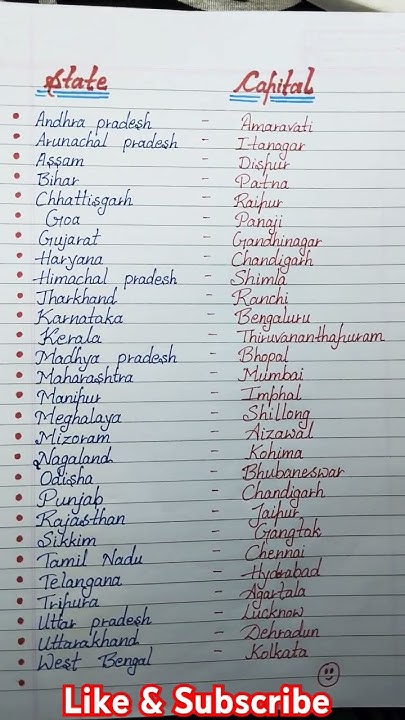 State Capital
Andhra pradesh - Amaravati
Arunachal pradesh - Itanagar
Assam - Dispur
Bihar - Patna
Chhattisgarh - Raipur
Goa - Panaji
Gujarat - Gandhinagar
Haryana - Chandigarh
Himachal pradesh - Shimla
Jharkhand - Ranchi
Karnataka - Bengaluru
Kerala - Thiruvananthapuram
Madhya pradesh - Bhopal
Maharashtra - Mumbai
Manipur - Imphal
Meghalaya - Shillong
Mizoram - Aizawal
Nagaland - Kohima
Odisha - Bhubaneswar
Punjab - Chandigarh
Rajasthan - Jaipur
Sikkim - Gangtok
Tamil Nadu - Chennai
Telangana - Hydrabad
Tripura - Agartala
Uttar pradesh - Lucknow
Uttarakhand - Dehradun
West Bengal - Kolkata
Like & Subscribe